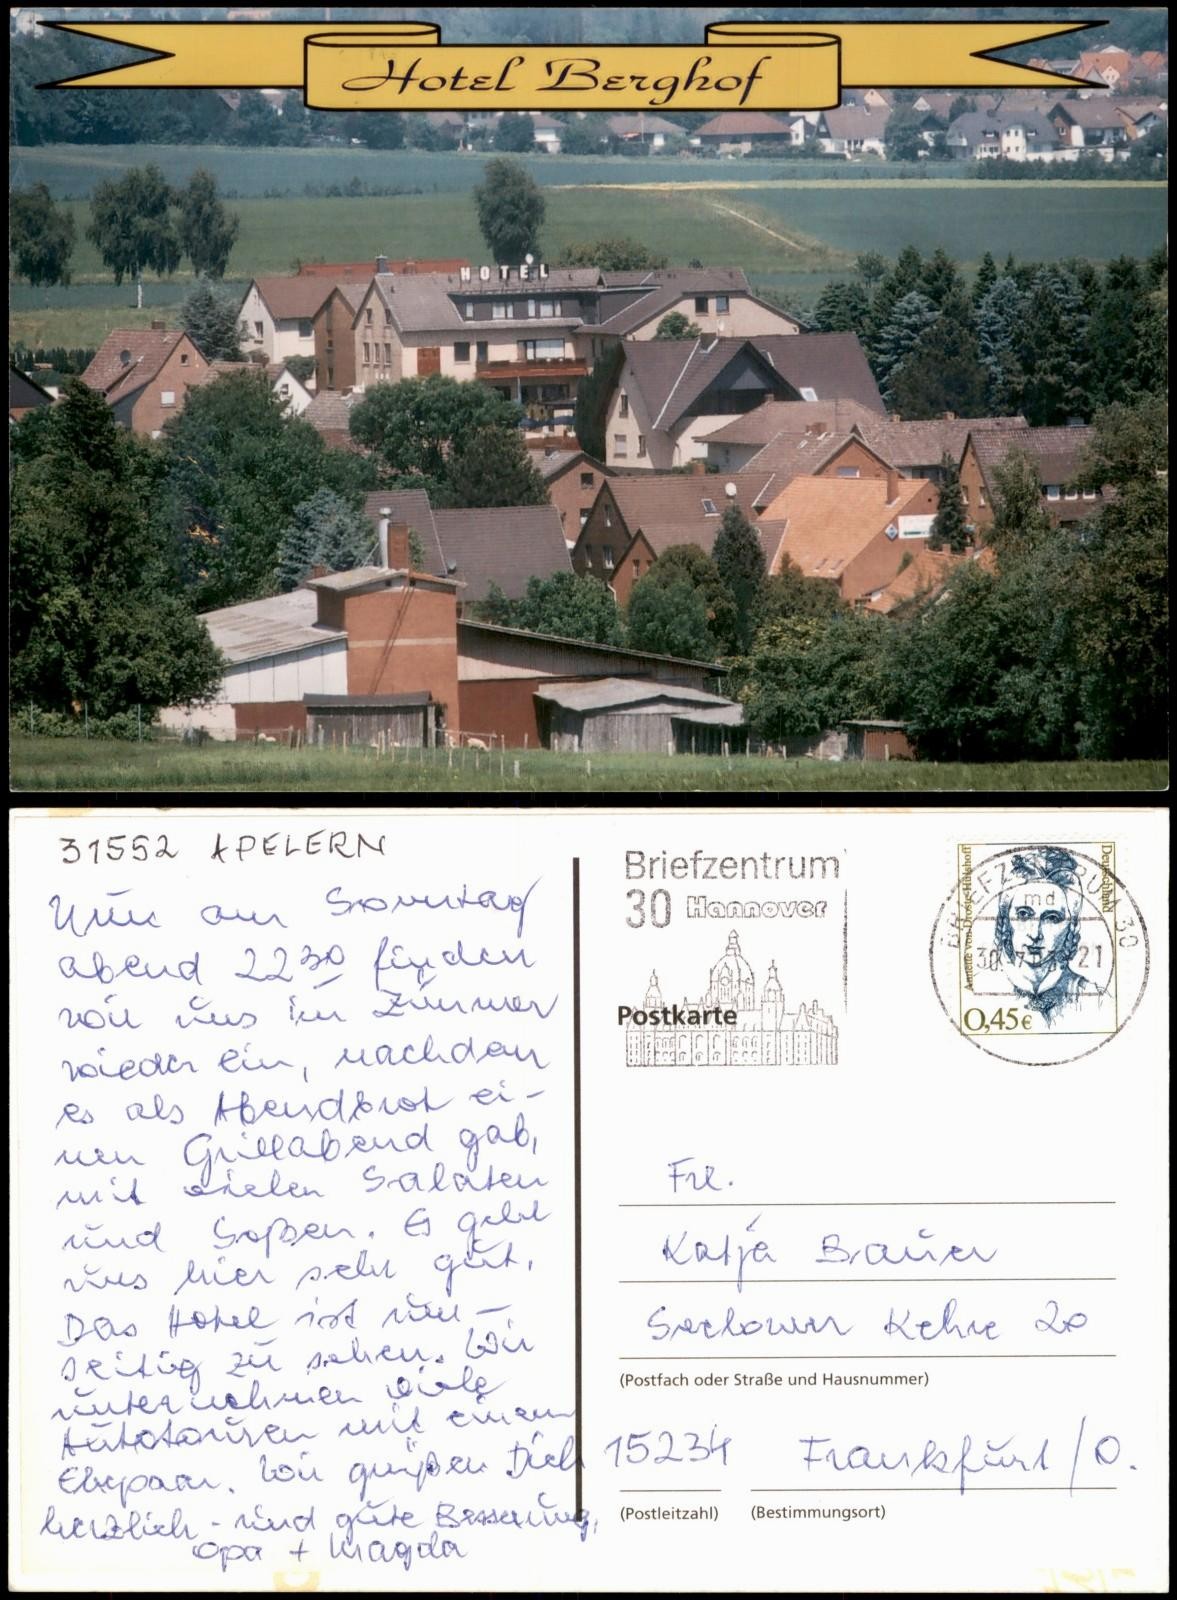 Hotel Berghof
HOTEL
31552 APELERN
Nun am Sonntag
abend 22³⁰ finden
wir uns im Zimmer
wieder ein, nachdem
es als Abendbrot ei-
nen Grillabend gab,
mit vielen Salaten
und Soßen. Es geht
uns hier sehr gut.
Das Hotel ist
zu sehen. Wir
unternehmen viele
Autotouren mit einem
Ehepaar. Wir grüßen Dich
herzlich - und gute Besserung,
Opa + Magda
Briefzentrum
30 Hannover
Postkarte
BRIEFZENTRUM 30
md
21
Annette von Droste-Hülshoff
Deutschland
0,45€
Frl.
Katja Brauer
Seelower Kehre 20
(Postfach oder Straße und Hausnummer)
15234 Frankfurt/O.
(Postleitzahl) (Bestimmungsort)